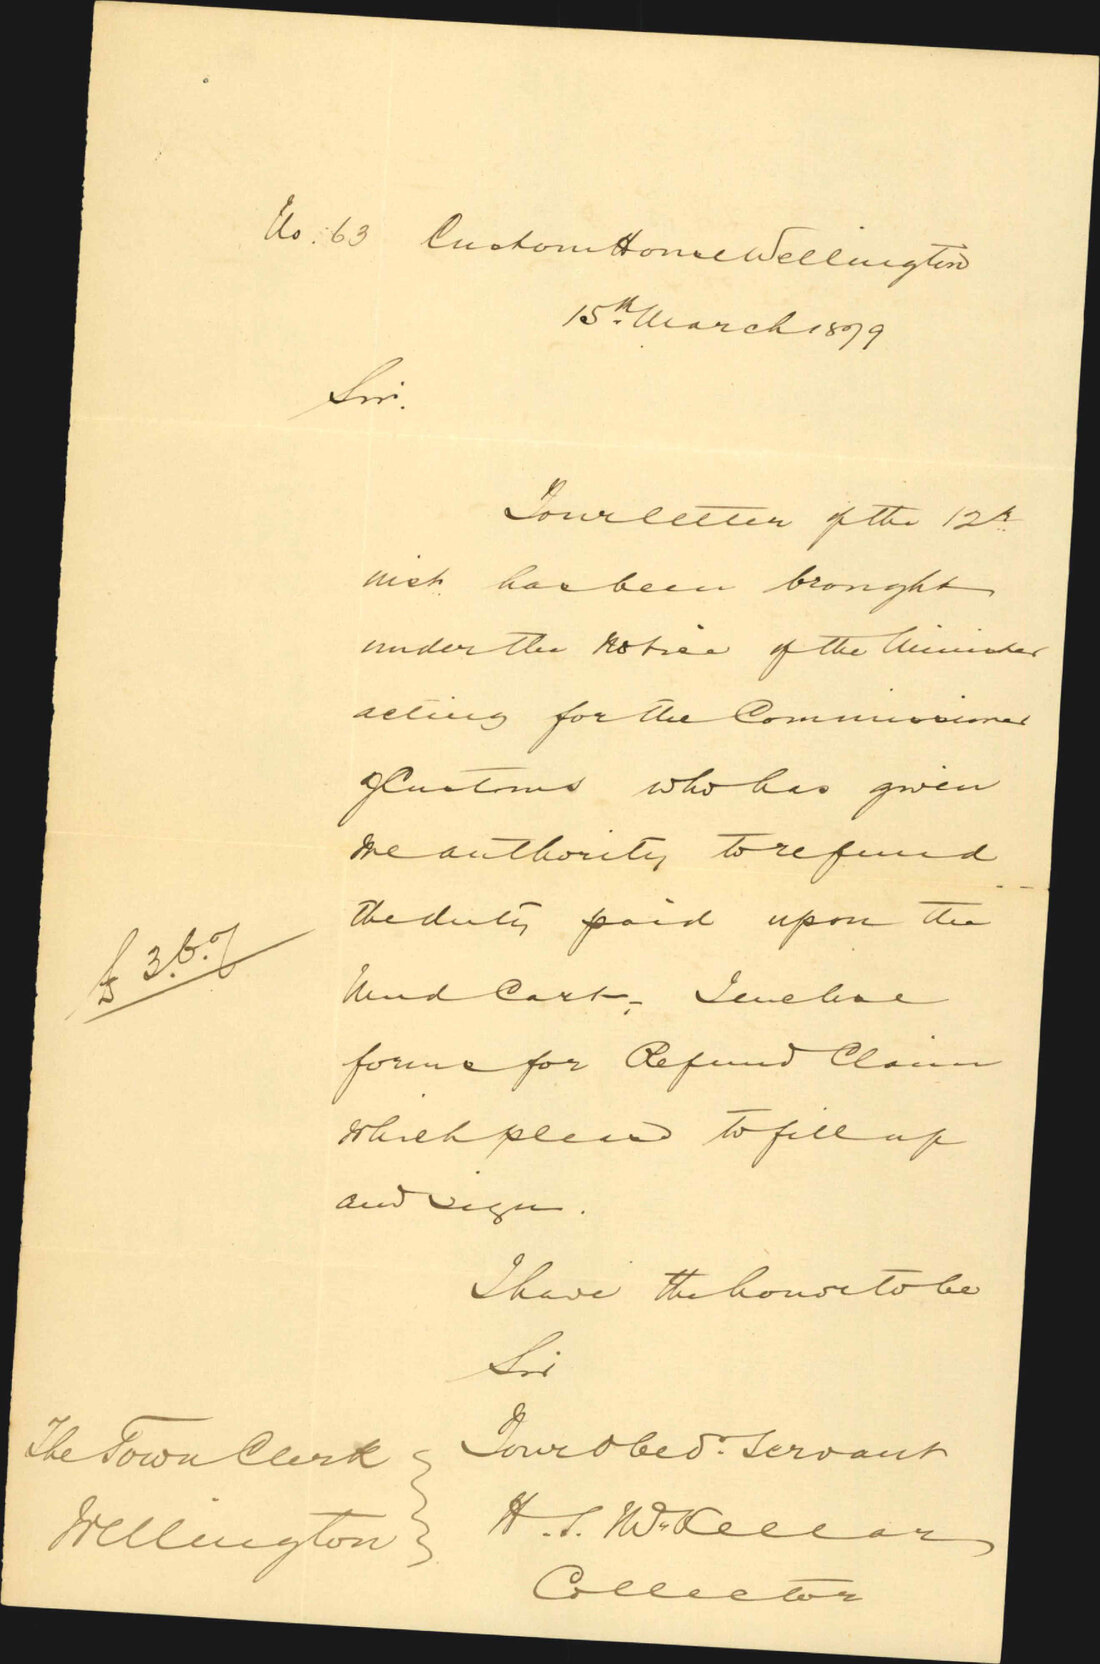 No. 63 Custom House Wellington
15th March 1879
Sir.
Your letter of the 12th
inst. has been brought
under the notice of the Minister
acting for the Commissioner
of Customs who has given
me authority to refund
the duty paid upon the
£3.6.
Mud Cart;- I enclose
forms for Refund Claim
which please to fill up
and sign.
I have the honor to be
Sir
Your Obedt. Servant
H. S. McKellar
Collector
The Town Clerk
Wellington